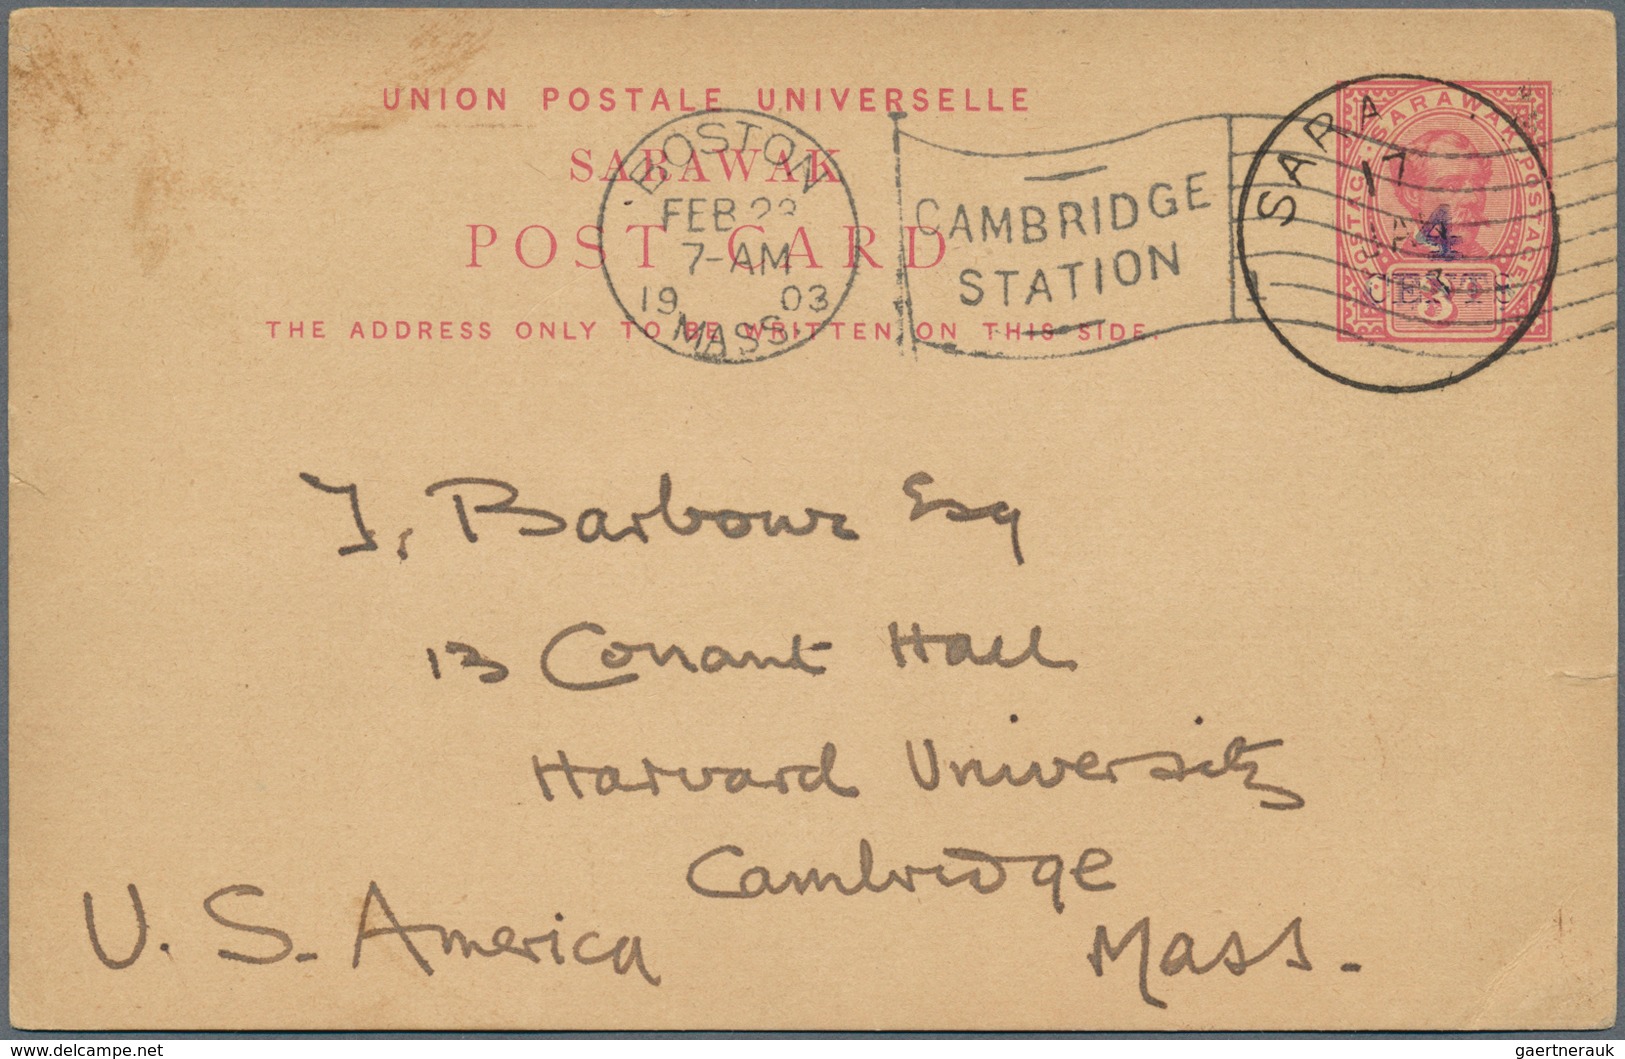 UNION POSTALE UNIVERSELLE
SARAWAK
POST CARD
THE ADDRESS ONLY TO BE WRITTEN ON THIS SIDE.
BOSTON
FEB
7-AM
19 03
MASS
CAMBRIDGE
STATION
SARA
17
SARAWAK POSTAGE
4
CENTS
3
T. Barbour Esq
13 Conant Hall
Harvard University
Cambridge
Mass.
U. S. America
www.delcampe.net
gaertnerauk